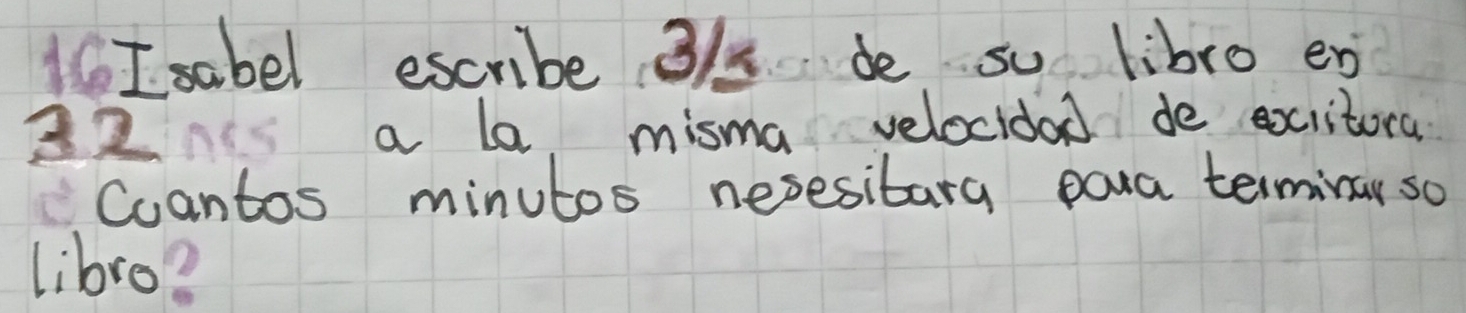 16 Isabel escribe 3/5 de su libro en
32 a la misma velocidad de escritora
Cuantos minutos nesesitara para terminar so
libro?